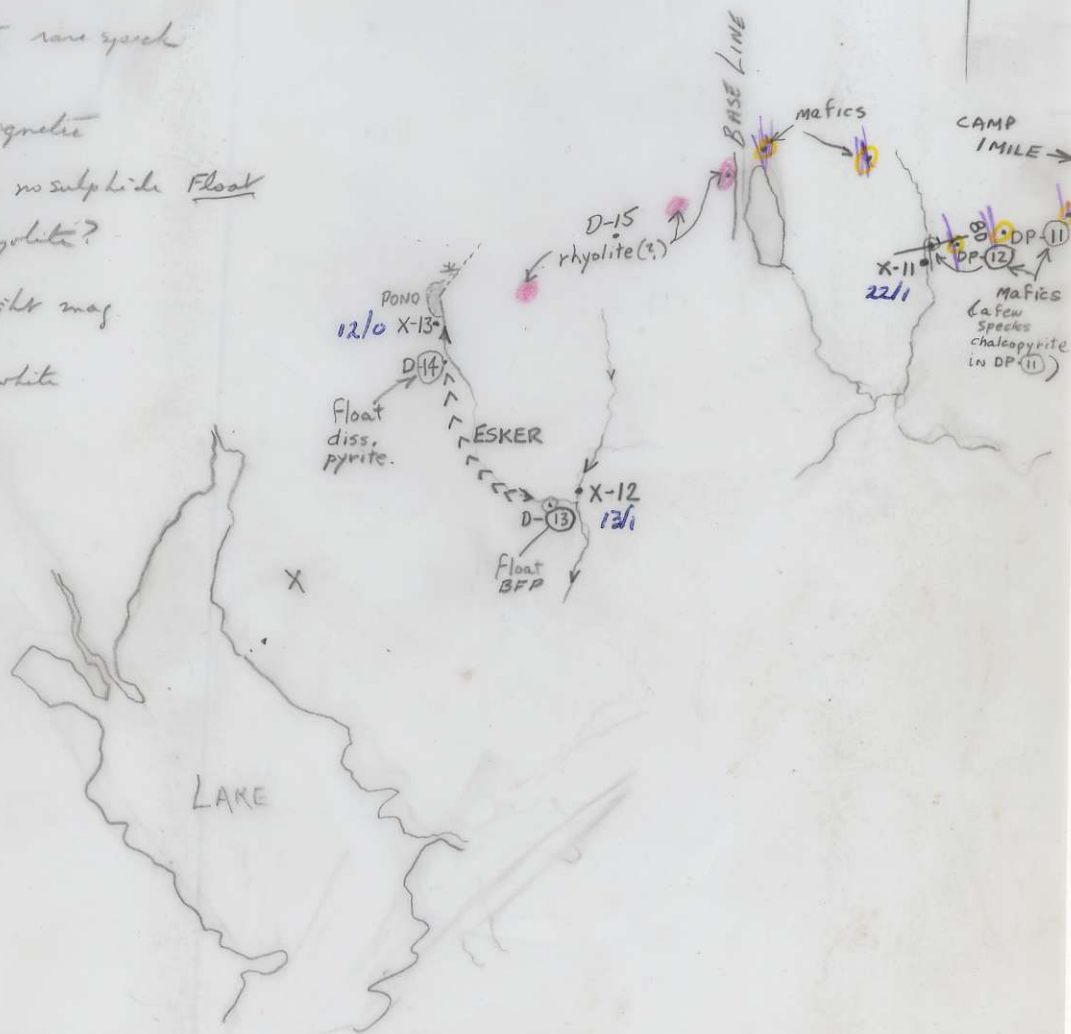 rare speck
no sulphide Float
mag
white
BASE LINE
mafics
CAMP
1 MILE
D-15
rhyolite(?)
BD
DP-11
DP-12
X-11
22/1
Mafics
(a few
species
chalcopyrite
in DP-11)
POND
12/0 X-13
D-14
Float
diss.
pyrite.
ESKER
X-12
13/1
D-13
Float
BFP
X
LAKE